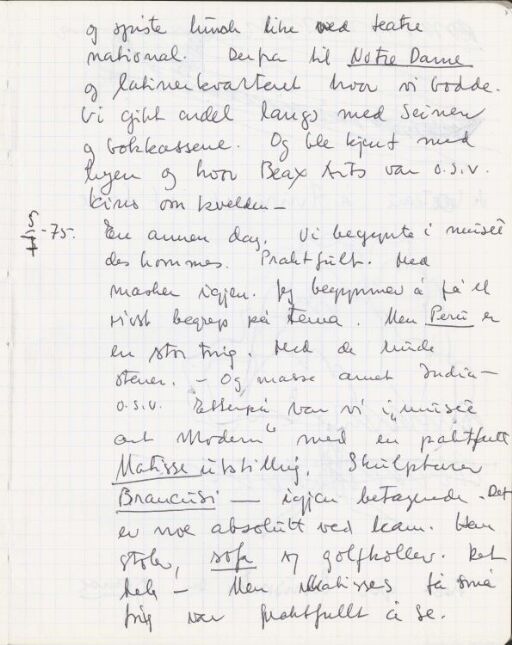 og spiste lunch like ved teatre
national. Derfra til Notre Dame
og latinerkvarteret hvor vi bodde.
Vi gikk endel langs med Seinen
og bokkassene. Og ble kjent med
byen og hvor Beax Arts var o.s.v.
kino om kvelden –
5/7 -75. En annen dag. Vi begynte i museé
des hommes. Praktfullt. Med
masker igjen. Jeg begynner å få et
visst begrep på tema. Men Peru er
en stor ting. Med de runde
stener. – Og masse annet India –
o.s.v. Etterpå var vi i "museé
art Modern" med en praktfull
Matisse utstilling. Skulpturer
Brancusi — igjen betagende. Det
er noe absolutt ved ham. Han
stoler, sofa og golfkøller. Det
hele – Men Matisses få små
ting var praktfullt å se.